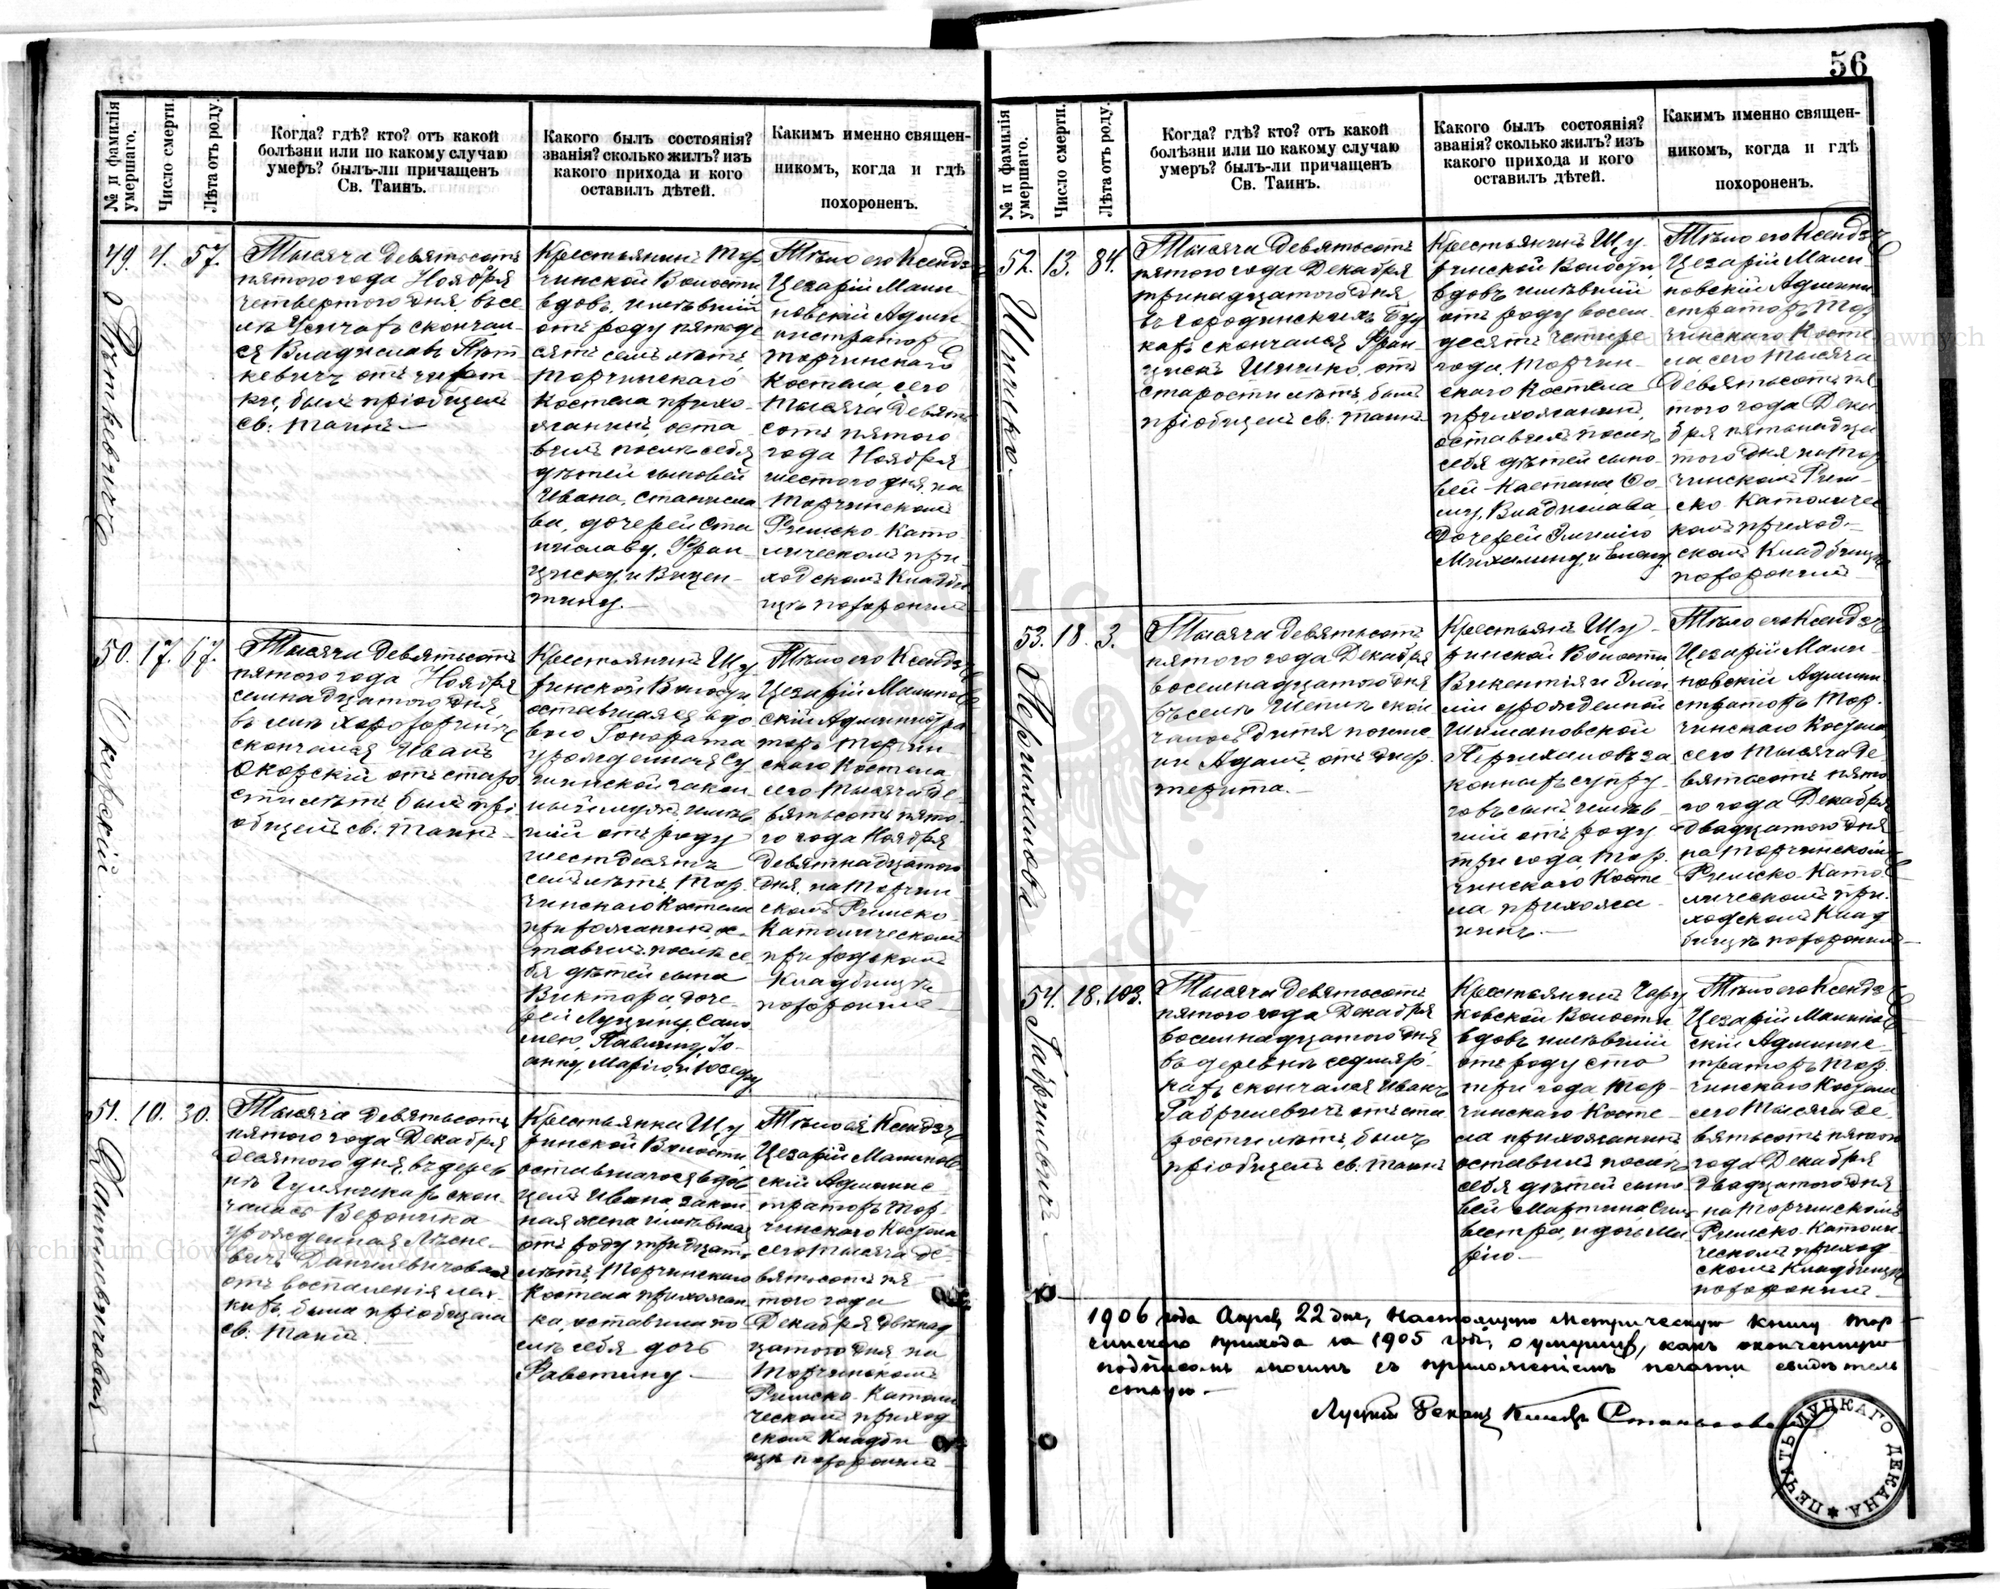 56
№ и фамилія умершаго.
Число смерти.
Лѣта отъ роду.
Когда? гдѣ? кто? отъ какой
болѣзни или по какому случаю
умеръ? былъ-ли причащенъ
Св. Таинъ.
Какого былъ состоянія?
званія? сколько жилъ? изъ
какого прихода и кого
оставилъ дѣтей.
Какимъ именно священ-
никомъ, когда и гдѣ
похороненъ.
49. 4. 57.
Тысяча девятьсотъ
пятого года Ноября
четвертого дня въ се
скончал
ся Владиславъ
кевичъ отъ
былъ пріобщенъ
св. Таинъ
Крестьянинъ
чинской Волости
вдовъ, имѣвшій
отъ роду пятьде
сятъ семь лѣтъ,
Торчинскаго
Костела прихо-
жанинъ, оста
вилъ послѣ себя
дѣтей сыновей
Ивана, Станисла
ва, дочерей Ста
ниславу, Фран-
циску, и Винцен-
тину.
Тѣло его Ксендзъ
Цезарій Мали
новскій Адми
нистраторъ
Торчинскаго
Костела сего
тысяча девять
сотъ пятого
года Ноября
шестого дня, на
Торчинскомъ
Римско-Като
лическомъ при
ходскомъ Кладби
щѣ похоронилъ
50. 17. 67.
Окорскій
Тысяча девятьсотъ
пятого года Ноября
семнадцатого дня
скончался Иванъ
Окорскій отъ старо
сти лѣтъ былъ прі
общенъ св. Таинъ
Крестьянинъ Щу
ринской Волости
оставшаяся вдо
вою Гонората
урожденная
законный мужъ, имѣв
шій отъ роду
шестдесятъ
семь лѣтъ, Тор
чинскаго Костела
прихожанинъ, о-
ставилъ послѣ се
бя дѣтей сына
Виктора, доче
рей Луцину, Сало
мею, Павлину, Іо-
анну, Марію, и Юсефу
Тѣло его Ксендзъ
Цезарій Малинов
скій Администра
торъ Торчин
скаго Костела
сего тысяча де-
вятьсотъ пято-
го года Ноября
девятнадцатого
дня, на Торчин
скомъ Римско-
Католическомъ
приходскомъ
Кладбищѣ
похоронилъ
51. 10. 30.
Данилевичовая
Тысяча девятьсотъ
пятого года Декабря
десятого дня, въ дерев
нѣ Гуляникахъ скон-
чалась Вероника
урожденная
Данилевичовая
отъ воспаленія лег
кихъ, была пріобщена
св. Таинъ
Крестьянка Щу
ринской Волости
оставшагося вдов
цемъ Ивана, закон
ная жена имѣвшая
отъ роду тридцать
лѣтъ, Торчинскаго
Костела прихожан
ка, оставила по
слѣ себя дочь
Фавстину
Тѣло ея Ксендзъ
Цезарій Малинов
скій Админис
траторъ Тор-
чинскаго Костела
сего тысяча де-
вятьсотъ пя
того года
Декабря двѣнад
цатого дня на
Торчинскомъ
Римско-Католи
ческомъ приход
скомъ Кладби
щѣ похоронилъ
№ и фамилія умершаго.
Число смерти.
Лѣта отъ роду.
Когда? гдѣ? кто? отъ какой
болѣзни или по какому случаю
умеръ? былъ-ли причащенъ
Св. Таинъ.
Какого былъ состоянія?
званія? сколько жилъ? изъ
какого прихода и кого
оставилъ дѣтей.
Какимъ именно священ-
никомъ, когда и гдѣ
похороненъ.
52. 13. 84.
Шишко
Тысяча девятьсотъ
пятого года Декабря
тринадцатого дня
скончался Фран
цискъ Шишко, отъ
старости лѣтъ, былъ
пріобщенъ св. Таинъ
Крестьянинъ Щу-
ринской Волости
вдовъ имѣвшій
отъ роду восем
десятъ четыре
года, Торчин-
скаго Костела
прихожанинъ,
оставилъ послѣ
себя дѣтей сыно-
вей Каетана,
Владислава,
дочерей Эмилію
Михалину, и Елену
Тѣло его Ксендзъ
Цезарій Мали-
новскій Админи
страторъ Тор
чинскаго Косте
ла сего тысяча
девятьсотъ пя-
того года Дека
бря пятьнадца
того дня на Тор
чинскомъ Рим-
ско-Католичес
комъ приход-
скомъ Кладбищѣ
похоронилъ
53. 18. 3.
Перихановъ
Тысяча девятьсотъ
пятого года Декабря
восемнадцатого дня
въ селѣ Шепелѣ скон
чалось дитя
Адамъ, отъ диф
терита.
Крестьянъ Щу-
ринской Волости
Викентія и Эми
ліи урожденной
Шимановской
Перихановъ за
конныхъ супру-
говъ сынъ имѣв
шій отъ роду
три года, Тор.
чинскаго Косте-
ла прихожа-
нинъ.
Тѣло его Ксендзъ
Цезарій Мали-
новскій Админи
страторъ Тор.
чинскаго Костела,
сего тысяча де-
вятьсотъ пято
го года Декабря
двадцатого дня
на Торчинскомъ
Римско-Като
лическомъ при-
ходскомъ Клад
бищѣ похоронилъ
54. 18. 103.
Габрилевичъ
Тысяча девятьсотъ
пятого года Декабря
восемнадцатого дня
въ деревнѣ Седмяр-
кахъ скончался Иванъ
Габрилевичъ отъ ста
рости лѣтъ, былъ
пріобщенъ св. Таинъ
Крестьянинъ Чару
ковской Волости
вдовъ имѣвшій
отъ роду сто
три года, Тор-
чинскаго Косте-
ла прихожанинъ
оставилъ послѣ
себя дѣтей сыно
вей Мартина, Силь
вестра, и дочь Ма
рію
Тѣло его Ксендзъ
Цезарій Малинов
скій Админис
траторъ Тор.
чинскаго Костела
сего тысяча де
вятьсотъ пятого
года Декабря
двадцатого дня
на Торчинскомъ
Римско-Католи
ческомъ приход
скомъ Кладбищѣ
похоронилъ
1906 года Апрѣля 22 дня, настоящую метрическую книгу Тор
чинскаго прихода за 1905 годъ, о умершихъ, какъ оконченную
подписомъ моимъ съ приложеніемъ печати свидѣтель
ствую.
Луцкій Деканъ
ПЕЧАТЬ ЛУЦКАГО ДЕКАНА
Archiwum Główne Akt Dawnych